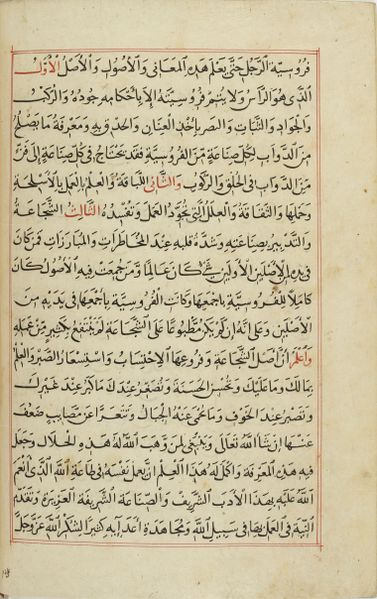 فروسية الرجل حتى يعلم هذه المعانى والأصول والأصل الأول
الذى هو الرأس ولا يتم فروسيته إلا بأحكامه جوده والركب
والجواد والثبات والبصر بأخذ العنان والحذق به ومعرفة ما يصلح
من الدواب لكل صناعة من الفروسية فقد يحتاج فى كل صناعة إلى فن
من الدواب فى الخلق والركوب والثانى اللباقة والعلم بالعمل بالأسلحة
وحملها والثقافة والعلل التى تجود العمل وتفسده الثالث الشجاعة
والتدبير بصناعته وشدة قلبه عند المخاطرات والمبارزات فمن كان
فى يديه الأصلين الأولين كان عالما ومن جمعت فيه الأصول كان
كاملا للفروسية بأجمعها وكانت الفروسية بأجمعها فى يديه من
الأصلين وعلى انه إن لم يكن مطبوعا على الشجاعة لم ينتفع بكثير من عمله
واعلم أن أصل الشجاعة وفروعها الاحتساب واستشعار الصبر والعلم
بما لك وما عليك وتحسن الحسنة وتصغر عندك ما كبر عند غيرك
وتصبر عند الخوف وما تحى عنه الجبال وتتعزا عن مصايب ضعف
عنها إن شا الله تعالى وينبغى لمن وهب الله له هذه الخلال وجعل
فيه هذه المعرفة واكل له هذا العلم أن يعمل نفسه فى طاعة الله الذى أنعم
الله عليه بهذا الأدب الشريف والصناعة الشريفة العزيزة وتقدم
النية فى العمل بها فى سبيل الله ومجاهدة اعدايه كثيرا لشكر الله عز وجل